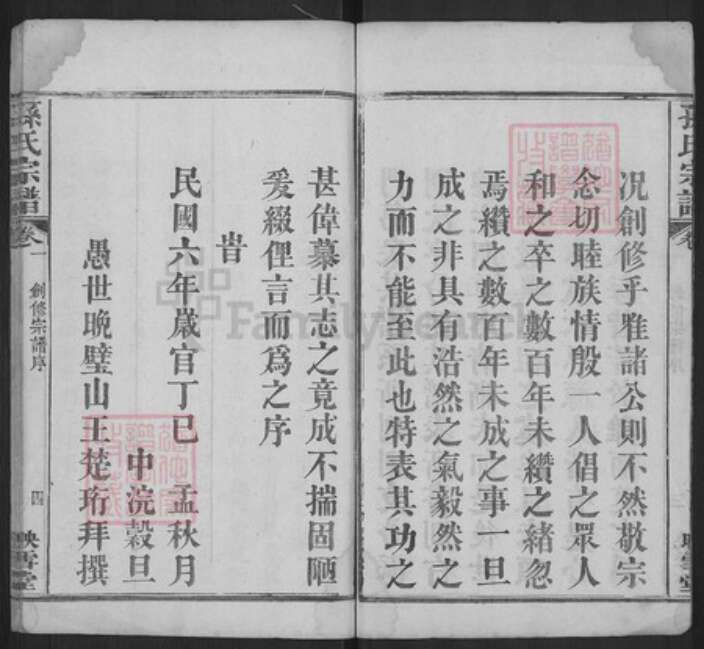 况創修乎雅諸公則不然敬宗
念切睦族情殷一人倡之眾人
和之卒之數百年未纘之緒忽
焉纘之數百年未成之事一旦
成之非具有浩然之氣毅然之
力而不能至此也特表其功之
甚偉慕其志之竟成不揣固陋
爰綴俚言而為之序
旹
民國六年歲官丁巳 孟秋月
中浣穀旦
愚世晚璧山王楚珩拜撰
孫氏宗譜
卷一 創修宗譜序 四
映雪堂
FamilySearch